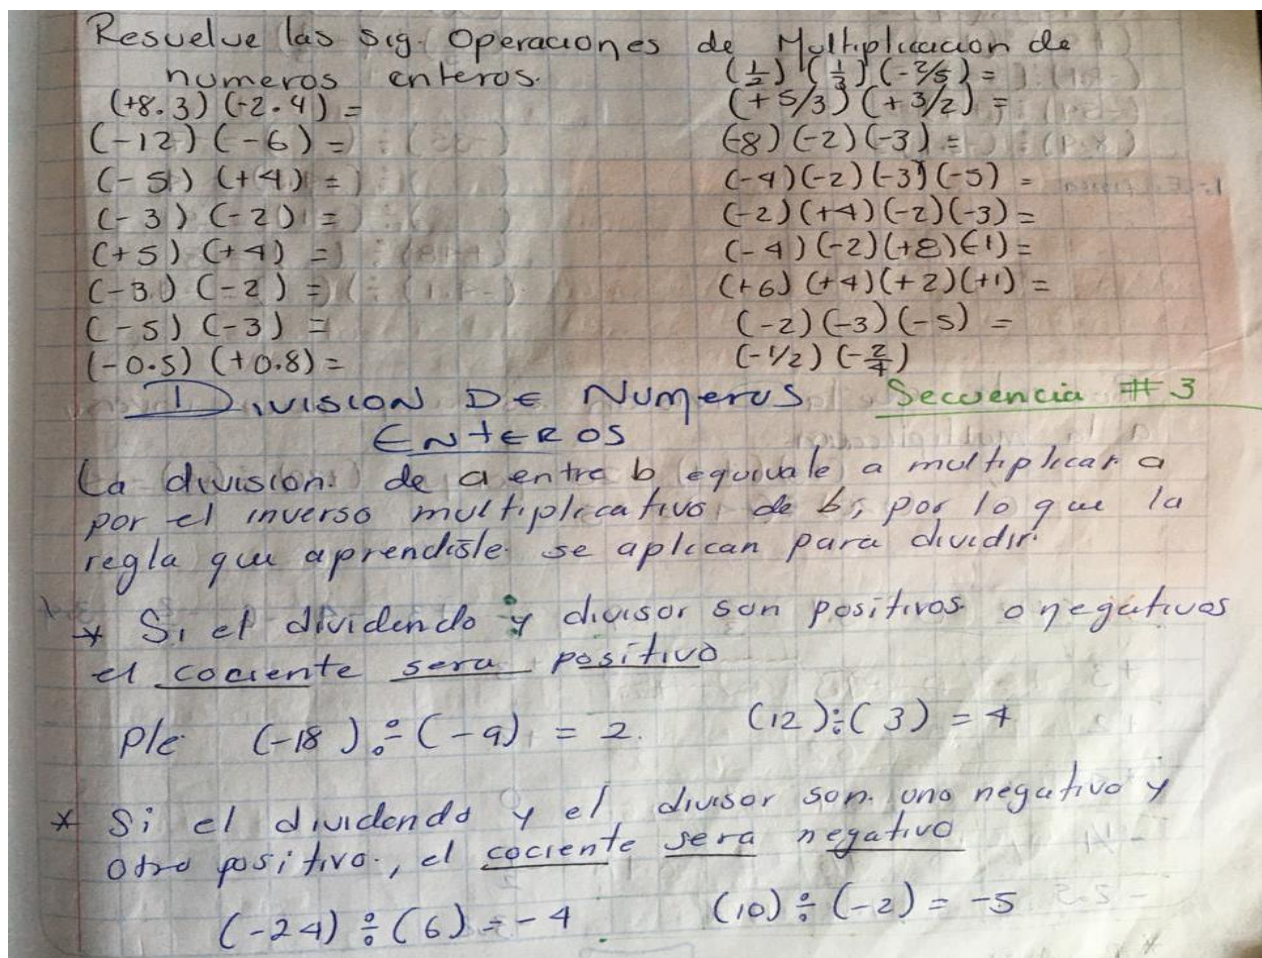 Resuelve las sig. Operaciones de Multiplicacion de
numeros enteros.
(+8.3) (-2.4) =
(-12) (-6) =
(-5) (+4) =
(-3) (-2) =
(+5) (+4) =
(-3) (-2) =
(-5) (-3) =
(-0.5) (+0.8) =
(1/2) (1/3) (-2/5) =
(+5/3) (+3/2) =
(-8) (-2) (-3) =
(-4) (-2) (-3) (-5) =
(-2) (+4) (-2) (-3) =
(-4) (-2) (+8) (-1) =
(+6) (+4) (+2) (+1) =
(-2) (-3) (-5) =
(-1/2) (-2/4)
DIVISION DE NUMEROS
ENTEROS
Secuencia # 3
La division de a entre b equivale a multiplicar a
por el inverso multiplicativo de b, por lo que la
regla que aprendiste se aplican para dividir.
* Si el dividendo y divisor son positivos o negativos
el cociente sera positivo
Ple (-18) ÷ (-9) = 2. (12) ÷ (3) = 4
* Si el dividendo y el divisor son uno negativo y
otro positivo, el cociente sera negativo
(-24) ÷ (6) = -4 (10) ÷ (-2) = -5